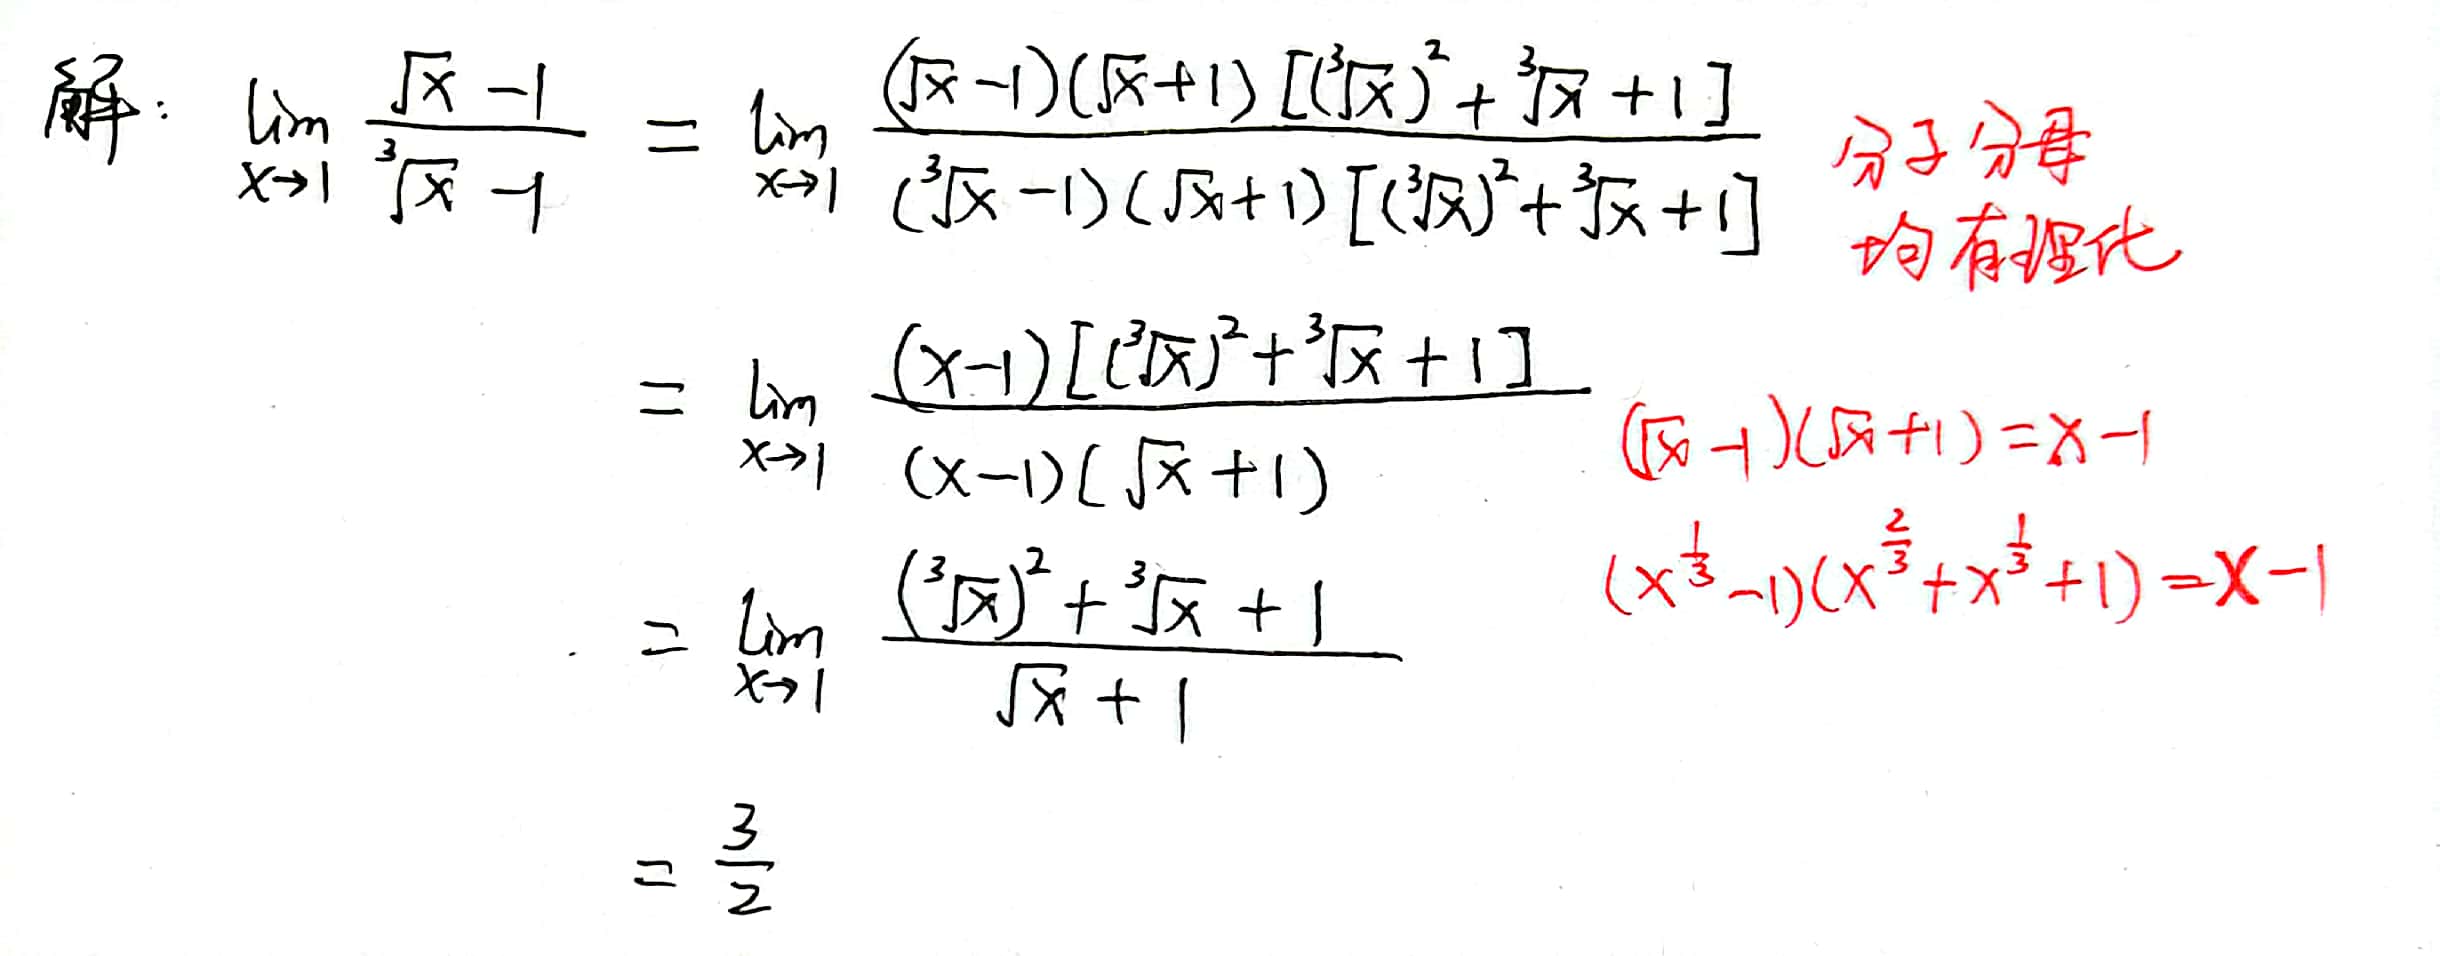 解: $\lim\limits_{x \to 1} \frac{\sqrt{x}-1}{\sqrt[3]{x}-1} = \lim\limits_{x \to 1} \frac{(\sqrt{x}-1)(\sqrt{x}+1)[(\sqrt[3]{x})^2+\sqrt[3]{x}+1]}{(\sqrt[3]{x}-1)(\sqrt{x}+1)[(\sqrt[3]{x})^2+\sqrt[3]{x}+1]}$
分子分母
均有理化
$= \lim\limits_{x \to 1} \frac{(x-1)[(\sqrt[3]{x})^2+\sqrt[3]{x}+1]}{(x-1)(\sqrt{x}+1)}$
$(\sqrt{x}-1)(\sqrt{x}+1)=x-1$
$(x^{\frac{1}{3}}-1)(x^{\frac{2}{3}}+x^{\frac{1}{3}}+1)=x-1$
$= \lim\limits_{x \to 1} \frac{(\sqrt[3]{x})^2+\sqrt[3]{x}+1}{\sqrt{x}+1}$
$= \frac{3}{2}$